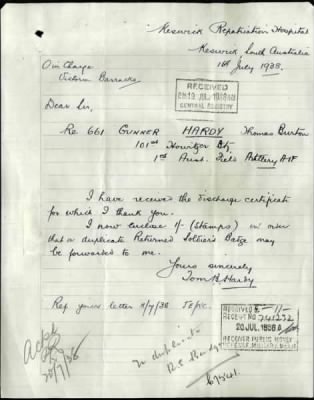 Keswick Repatriation Hospital
Keswick, South Australia
1st July 1938.
O in Charge
Victoria Barracks
RECEIVED
19 JUL 1938
CENTRAL REGISTRY
Dear Sir,
Re 661 GUNNER HARDY Thomas Burton
101st Howitzer Bty
1st Aust. Field Artillery AIF
I have receive the discharge certificate
for which I thank you.
I now enclose 1/- (stamps) in order
that a duplicate Returned Soldiers Badge may
be forwarded to me.
Yours sincerely
Tom B Hardy
Rep yours letter /7/38
RECEIVED 1/-
RECEIPT No 741232
20 JUL 1938
RECEIVER PUBLIC MONEY
Ackd
20/7/38
duplicate
R.S. Badge